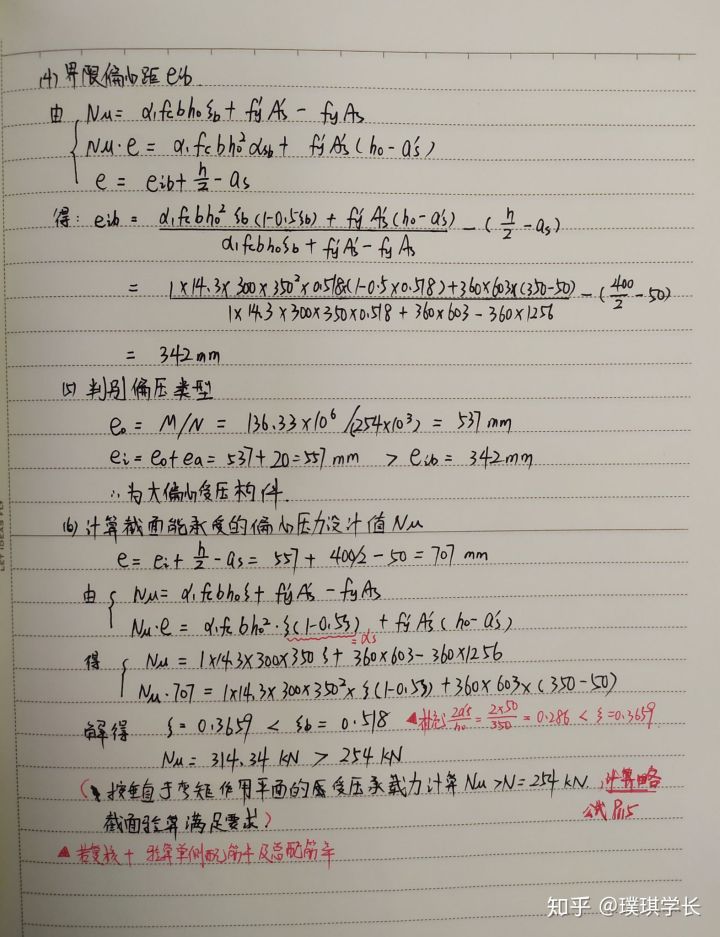 (4) 界限偏心距 eib
由 Nu = α₁fcbh₀ξb + fy'As' - fyAs
Nu·e = α₁fcbh₀²αsb + fy'As'(h₀-as')
e = eib + h/2 - as
得: eib = (α₁fcbh₀²ξb(1-0.5ξb) + fy'As'(h₀-as')) / (α₁fcbh₀ξb + fy'As' - fyAs) - (h/2 - as)
= (1×14.3×300×350²×0.518×(1-0.5×0.518)+360×603×(350-50)) / (1×14.3×300×350×0.518 + 360×603 - 360×1256) - (400/2 - 50)
= 342mm
(5) 判别偏压类型
e₀ = M/N = 136.33×10⁶/(254×10³) = 537 mm
ei = e₀+ea = 537+20 = 557 mm > eib = 342mm
∴为大偏心受压构件.
(6) 计算截面能承受的偏心压力设计值 Nu
e = ei + h/2 - as = 557 + 400/2 - 50 = 707 mm
由 Nu = α₁fcbh₀ξ + fy'As' - fyAs
Nu·e = α₁fcbh₀²·ξ(1-0.5ξ) + fy'As'(h₀-as')
=αs
得 Nu = 1×14.3×300×350ξ + 360×603 - 360×1256
Nu·707 = 1×14.3×300×350²×ξ(1-0.5ξ) + 360×603×(350-50)
解得 ξ = 0.3659 < ξb = 0.518 ▲补充: 2as'/h₀ = 2×50/350 = 0.286 < ξ = 0.3659
Nu = 314.34 kN > 254 kN
(按垂直于弯矩作用平面的受压承载力计算 Nu > N = 254 kN. 计算略
截面验算满足要求) 公式 P115
▲ 若复核 + 验算单侧配筋率及总配筋率
LET IDEAS FLY
知乎 @璞琪学长